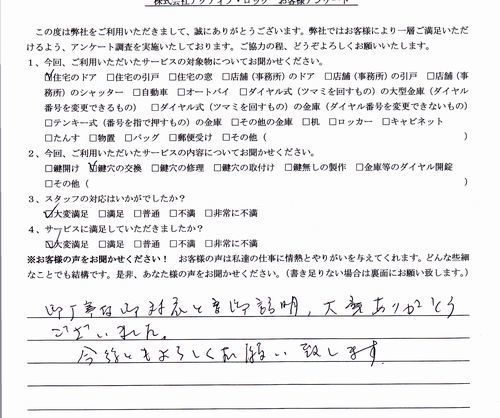 株式会社アクティブ・ロック お客様アンケート
この度は弊社をご利用いただきまして、誠にありがとうございます。弊社ではお客様により一層ご満足いただ
けるよう、アンケート調査を実施いたしております。ご協力の程、どうぞよろしくお願いいたします。
1、今回、ご利用いただいたサービスの対象物についてお聞かせください。
☑住宅のドア □住宅の引戸 □住宅の窓 □店舗（事務所）のドア □店舗（事務所）の引戸 □店舗（事
務所）のシャッター □自動車 □オートバイ □ダイヤル式（ツマミを回すもの）の大型金庫（ダイヤル
番号を変更できるもの） □ダイヤル式（ツマミを回すもの）の金庫（ダイヤル番号を変更できないもの）
□テンキー式（番号を指で押すもの）の金庫 □その他の金庫 □机 □ロッカー □キャビネット
□たんす □物置 □バッグ □郵便受け □その他（ ）
2、今回、ご利用いただいたサービスの内容についてお聞かせください。
□鍵開け ☑鍵穴の交換 □鍵穴の修理 □鍵穴の取付け □鍵無しの製作 □金庫等のダイヤル開錠
□その他（ ）
3、スタッフの対応はいかがでしたか？
☑大変満足 □満足 □普通 □不満 □非常に不満
4、サービスに満足していただきましたか？
☑大変満足 □満足 □普通 □不満 □非常に不満
※お客様の声をお聞かせください！ お客様の声は私達の仕事に情熱とやりがいを与えてくれます。どんな些細
なことでも結構です。是非、あなた様の声をお聞かせください。（書き足りない場合は裏面にお願い致します。）
御丁寧な御対応と御説明、大変ありがとう
ございました。
今後ともよろしくお願い致します。